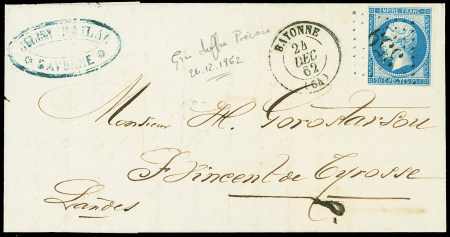 BAYONNE
Gros chiffre Précoce
24.12.1862
BAYONNE
24
DEC
62
(64)
EMPIRE FRANC
Monsieur H. Gorostarsou
St Vincent de Tyrosse
Landes